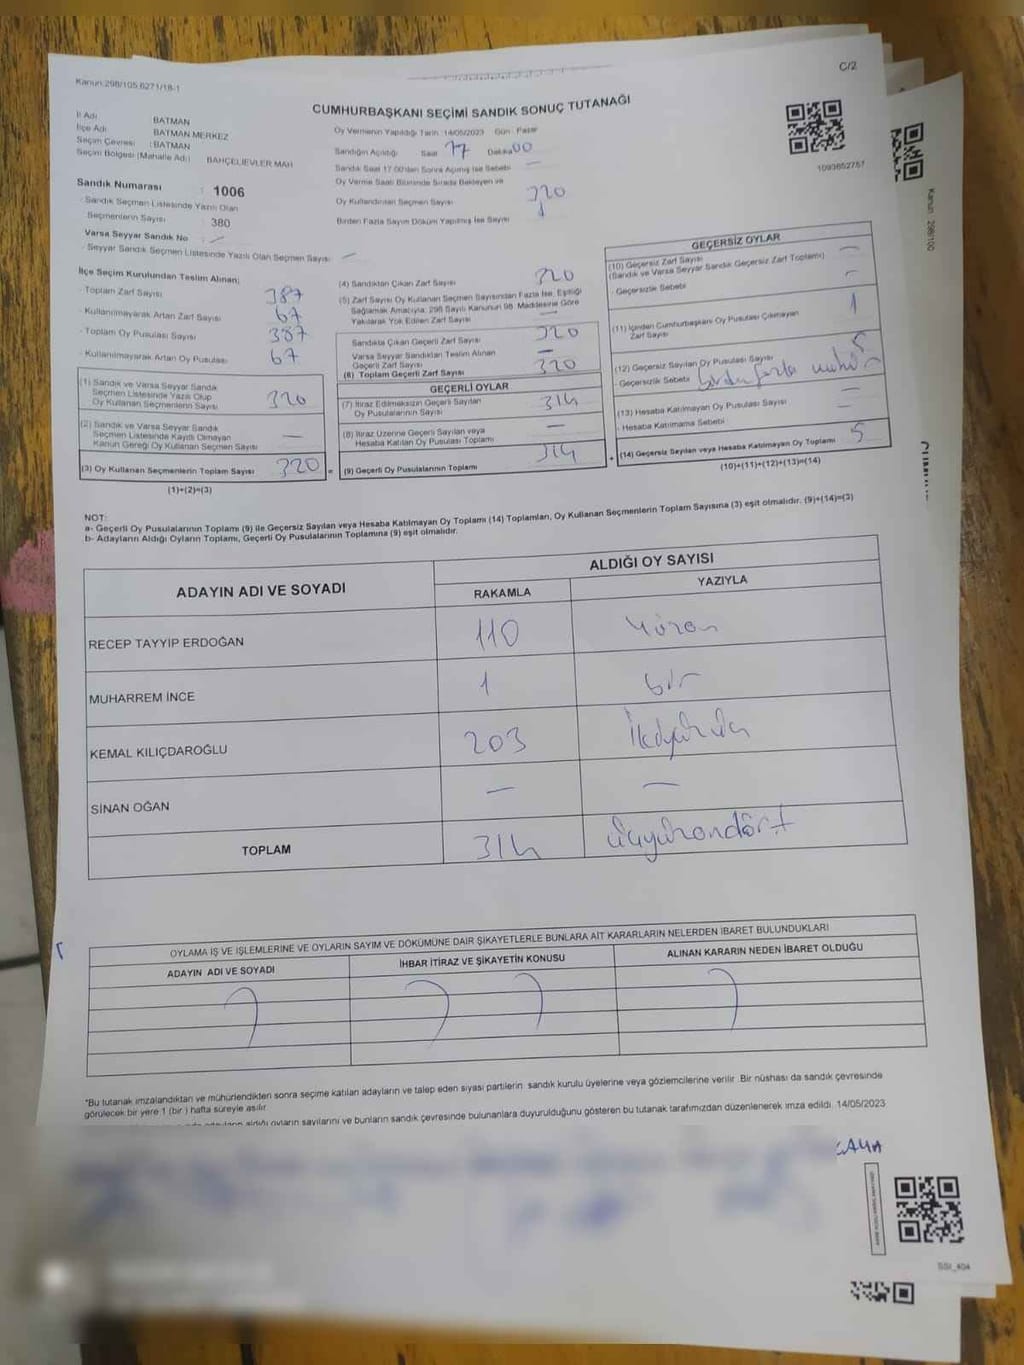 Kanun:298/105,6271/18-1
C/2
CUMHURBAŞKANI SEÇİMİ SANDIK SONUÇ TUTANAĞI
İl Adı BATMAN
İlçe Adı BATMAN MERKEZ
Seçim Çevresi : BATMAN
Seçim Bölgesi (Mahalle Adı) BAHÇELİEVLER MAH
Sandık Numarası : 1006
- Sandık Seçmen Listesinde Yazılı Olan
Seçmenlerin Sayısı : 380
Varsa Seyyar Sandık No : —
- Seyyar Sandık Seçmen Listesinde Yazılı Olan Seçmen Sayısı : —
Oy Vermenin Yapıldığı Tarih :14/05/2023 Gün : Pazar
Sandığın Açıldığı Saat 17 Dakika 00
Sandık Saat 17:00'dan Sonra Açılmış İse Sebebi —
Oy Verme Saati Bitiminde Sırada Bekleyen ve
Oy Kullandırılan Seçmen Sayısı 320
Birden Fazla Sayım Döküm Yapılmış İse Sayısı 1
1093652757
İlçe Seçim Kurulundan Teslim Alınan;
- Toplam Zarf Sayısı 387
- Kullanılmayarak Artan Zarf Sayısı 67
- Toplam Oy Pusulası Sayısı 387
- Kullanılmayarak Artan Oy Pusulası 67
(1) Sandık ve Varsa Seyyar Sandık
Seçmen Listesinde Yazılı Olup
Oy Kullanan Seçmenlerin Sayısı 320
(2) Sandık ve Varsa Seyyar Sandık
Seçmen Listesinde Kayıtlı Olmayan
Kanun Gereği Oy Kullanan Seçmen Sayısı —
(3) Oy Kullanan Seçmenlerin Toplam Sayısı 320 =
(1)+(2)=(3)
(4) Sandıktan Çıkan Zarf Sayısı 320
(5) Zarf Sayısı Oy Kullanan Seçmen Sayısından Fazla İse, Eşitliği
Sağlamak Amacıyla; 298 Sayılı Kanunun 98. Maddesine Göre
Yakılarak Yok Edilen Zarf Sayısı —
Sandıkta Çıkan Geçerli Zarf Sayısı 320
Varsa Seyyar Sandıktan Teslim Alınan
Geçerli Zarf Sayısı —
(6) Toplam Geçerli Zarf Sayısı 320
GEÇERLİ OYLAR
(7) İtiraz Edilmeksizin Geçerli Sayılan
Oy Pusulalarının Sayısı 314
(8) İtiraz Üzerine Geçerli Sayılan veya
Hesaba Katılan Oy Pusulası Toplamı —
(9) Geçerli Oy Pusulalarının Toplamı 314 +
GEÇERSİZ OYLAR
(10) Geçersiz Zarf Sayısı
(Sandık ve Varsa Seyyar Sandık Geçersiz Zarf Toplamı) —
- Geçersizlik Sebebi —
(11) İçinden Cumhurbaşkanı Oy Pusulası Çıkmayan
Zarf Sayısı 1
(12) Geçersiz Sayılan Oy Pusulası Sayısı 5
- Geçersizlik Sebebi birden fazla mühür
(13) Hesaba Katılmayan Oy Pusulası Sayısı —
- Hesaba Katılmama Sebebi —
(14) Geçersiz Sayılan veya Hesaba Katılmayan Oy Toplamı 5
(10)+(11)+(12)+(13)=(14)
NOT:
a- Geçerli Oy Pusulalarının Toplamı (9) ile Geçersiz Sayılan veya Hesaba Katılmayan Oy Toplamı (14) Toplamları, Oy Kullanan Seçmenlerin Toplam Sayısına (3) eşit olmalıdır. (9)+(14)=(3)
b- Adayların Aldığı Oyların Toplamı, Geçerli Oy Pusulalarının Toplamına (9) eşit olmalıdır.
ADAYIN ADI VE SOYADI ALDIĞI OY SAYISI
RAKAMLA YAZIYLA
RECEP TAYYİP ERDOĞAN 110 Yüzon
MUHARREM İNCE 1 bir
KEMAL KILIÇDAROĞLU 203 İkiyüzüç
SİNAN OĞAN — —
TOPLAM 314 üçyüzondört
OYLAMA İŞ VE İŞLEMLERİNE VE OYLARIN SAYIM VE DÖKÜMÜNE DAİR ŞİKAYETLERLE BUNLARA AİT KARARLARIN NELERDEN İBARET BULUNDUKLARI
ADAYIN ADI VE SOYADI İHBAR İTİRAZ VE ŞİKAYETİN KONUSU ALINAN KARARIN NEDEN İBARET OLDUĞU
*Bu tutanak imzalandıktan ve mühürlendikten sonra seçime katılan adayların ve talep eden siyasi partilerin sandık kurulu üyelerine veya gözlemcilerine verilir. Bir nüshası da sandık çevresinde
görülecek bir yere 1 (bir ) hafta süreyle asılır.
aldığı oyların sayılarını ve bunların sandık çevresinde bulunanlara duyurulduğunu gösteren bu tutanak tarafımızdan düzenlenerek imza edildi. 14/05/2023
SSI_404
Kanun: 298/100